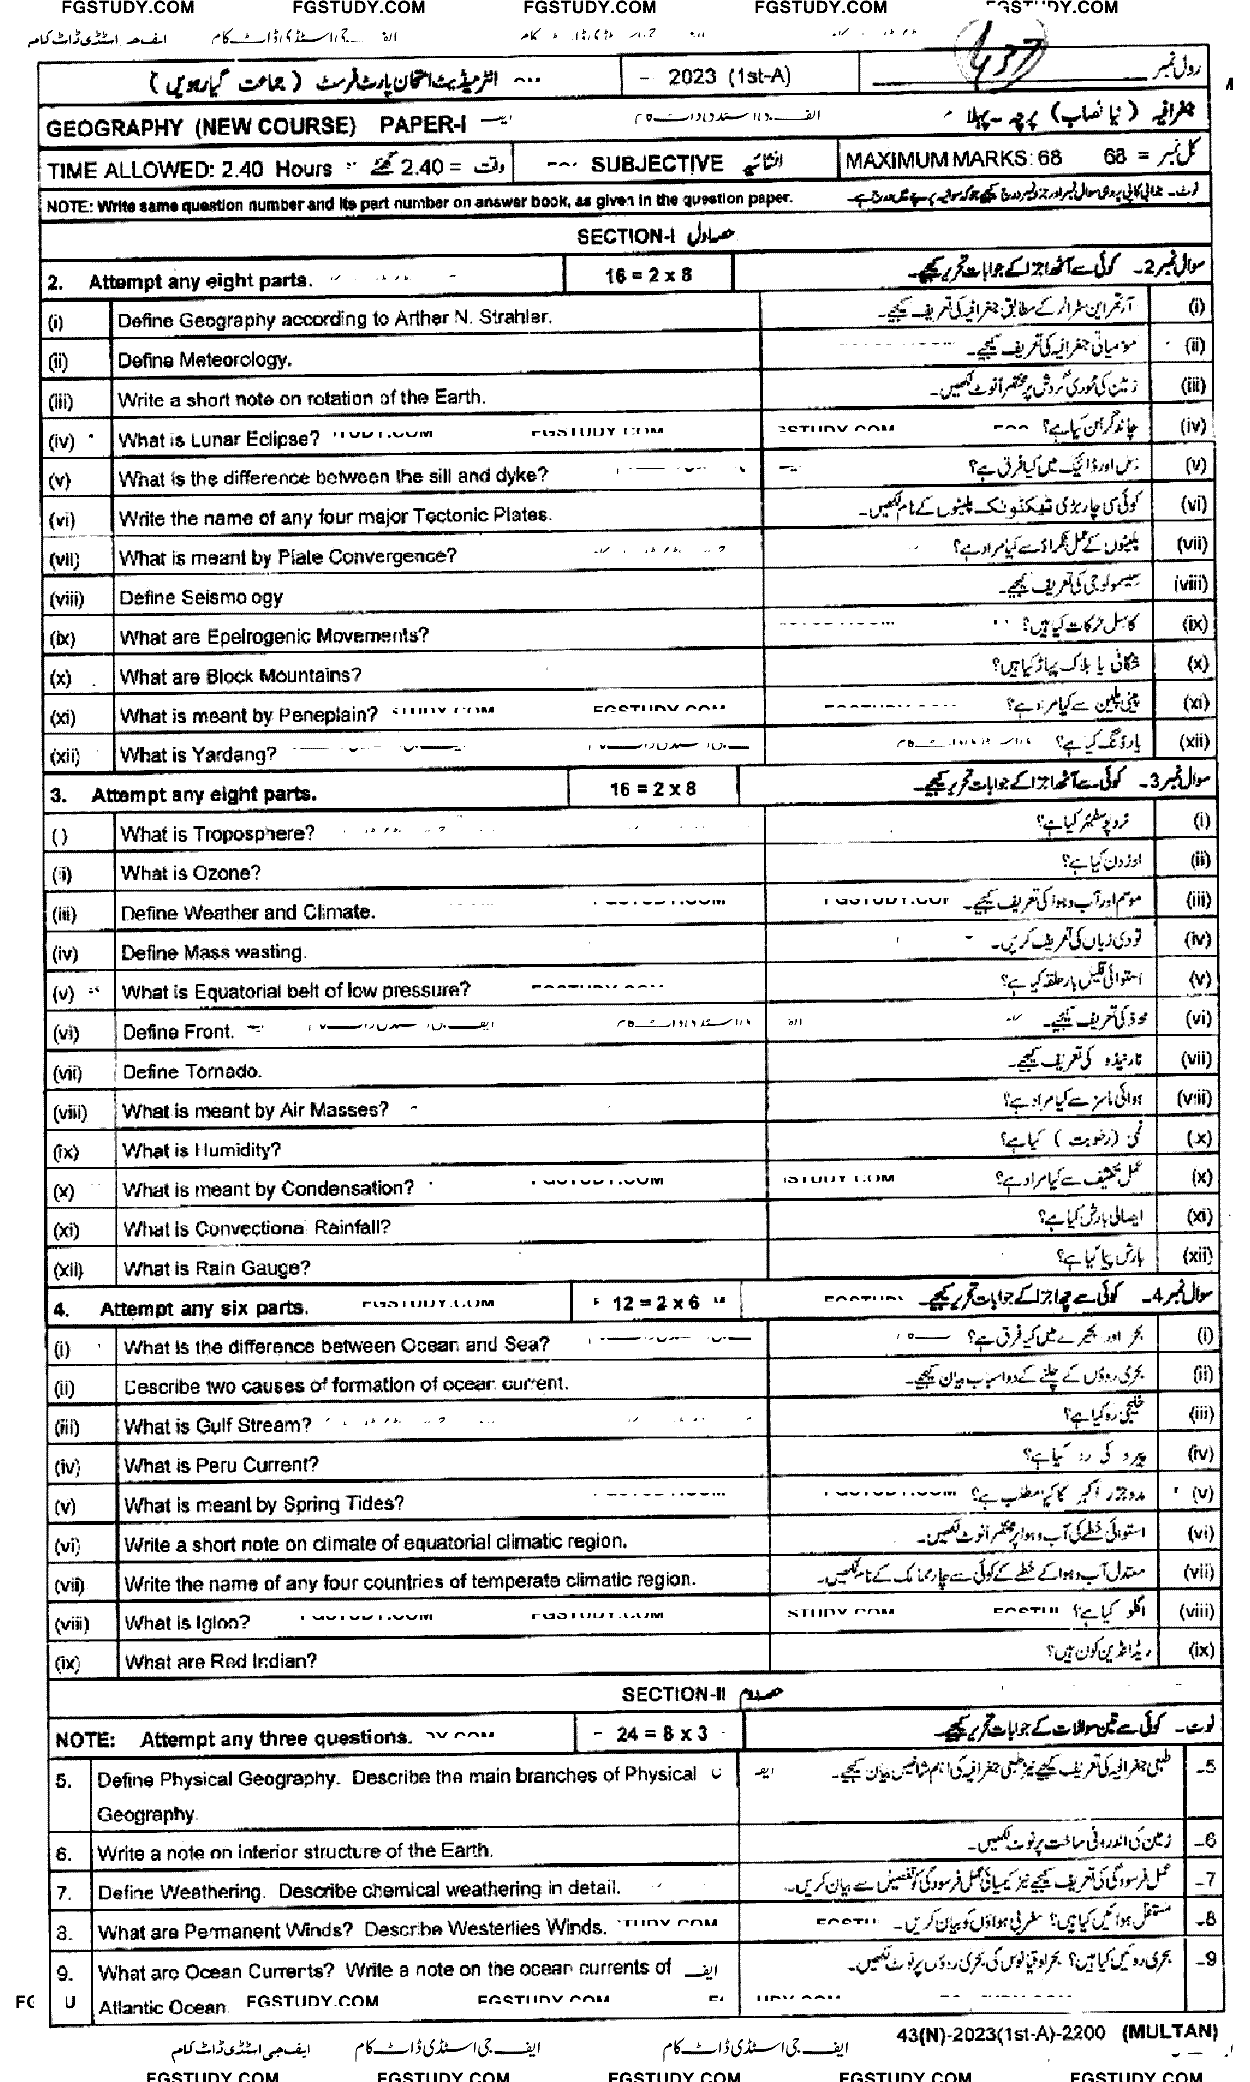 FGSTUDY.COM FGSTUDY.COM FGSTUDY.COM FGSTUDY.COM FGSTUDY.COM
ایف جی اسٹڈی ڈاٹ کام
رول نمبر 2023 (1st-A) انٹرمیڈیٹ امتحان پارٹ فرسٹ ( جماعت گیارہویں )
GEOGRAPHY (NEW COURSE) PAPER-I جغرافیہ ( نیا نصاب ) پرچہ ۔ پہلا
TIME ALLOWED: 2.40 Hours وقت = 2.40 گھنٹے SUBJECTIVE انشائیہ MAXIMUM MARKS: 68 کل نمبر = 68
NOTE: Write same question number and its part number on answer book, as given in the question paper.
SECTION-I حصہ اول
2. Attempt any eight parts. 16 = 2 x 8 سوال نمبر 2۔ کوئی سے آٹھ اجزا کے جوابات تحریر کیجیے۔
(i) Define Geography according to Arther N. Strahler. آرتھر این سٹراہلر کے مطابق جغرافیہ کی تعریف کیجیے۔ (i)
(ii) Define Meteorology. موسمیاتی جغرافیہ کی تعریف کیجیے۔ (ii)
(iii) Write a short note on rotation of the Earth. زمین کی محوری گردش پر مختصر نوٹ لکھیں۔ (iii)
(iv) What is Lunar Eclipse? چاند گرہن کیا ہے؟ (iv)
(v) What is the difference between the sill and dyke? سل اور ڈائیک میں کیا فرق ہے؟ (v)
(vi) Write the name of any four major Tectonic Plates. کوئی سی چار بڑی ٹیکٹونک پلیٹوں کے نام لکھیں۔ (vi)
(vii) What is meant by Plate Convergence? پلیٹوں کے عمل ٹکراؤ سے کیا مراد ہے؟ (vii)
(viii) Define Seismo ogy سیسمولوجی کی تعریف کیجیے۔ (viii)
(ix) What are Epeirogenic Movements? حرکات کیا ہیں؟ (ix)
(x) What are Block Mountains? یا بلاک پہاڑ کیا ہیں؟ (x)
(xi) What is meant by Peneplain? پینی پلین سے کیا مراد ہے؟ (xi)
(xii) What is Yardang? یارڈنگ کیا ہے؟ (xii)
3. Attempt any eight parts. 16 = 2 x 8 سوال نمبر 3۔ کوئی سے آٹھ اجزا کے جوابات تحریر کیجیے۔
( ) What is Troposphere? کیا ہے؟ (i)
(ii) What is Ozone? اوزون کیا ہے؟ (ii)
(iii) Define Weather and Climate. موسم اور آب و ہوا کی تعریف کیجیے۔ (iii)
(iv) Define Mass wasting. تودی زیاں کی تعریف کریں۔ (iv)
(v) What is Equatorial belt of low pressure? (v)
(vi) Define Front. محاذ کی تعریف کیجیے۔ (vi)
(vii) Define Tornado. ٹارنیڈو کی تعریف کیجیے۔ (vii)
(viii) What is meant by Air Masses? ہوائی ماسز سے کیا مراد ہے؟ (viii)
(ix) What is Humidity? نمی (رطوبت ) کیا ہے؟ (x)
(x) What is meant by Condensation? عمل تکثیف سے کیا مراد ہے؟ (x)
(xi) What is Convectional Rainfall? ایصالی بارش کیا ہے؟ (xi)
(xii) What is Rain Gauge? بارش پیما کیا ہے؟ (xii)
4. Attempt any six parts. 12 = 2 x 6 سوال نمبر 4۔ کوئی سے چھ اجزا کے جوابات تحریر کیجیے۔
(i) What is the difference between Ocean and Sea? بحر اور بحیرے میں کیا فرق ہے؟ (i)
(ii) Describe two causes of formation of ocean current. بحری روؤں کے چلنے کے دو اسباب بیان کیجیے۔ (ii)
(iii) What is Gulf Stream? خلیجی رو کیا ہے؟ (iii)
(iv) What is Peru Current? پیرو کی رو کیا ہے؟ (iv)
(v) What is meant by Spring Tides? مدوجزر اکبر کا کیا مطلب ہے؟ (v)
(vi) Write a short note on climate of equatorial climatic region. استوائی خطے کی آب و ہوا پر مختصر نوٹ لکھیں۔ (vi)
(vii) Write the name of any four countries of temperate climatic region. معتدل آب و ہوا کے خطے کے کوئی سے چار ممالک کے نام لکھیں۔ (vii)
(viii) What is Igloo? اگلو کیا ہے؟ (viii)
(ix) What are Red Indian? ریڈ انڈین کون ہیں؟ (ix)
SECTION-II حصہ دوم
NOTE: Attempt any three questions. 24 = 8 x 3 نوٹ۔ کوئی سے تین سوالات کے جوابات تحریر کیجیے۔
5. Define Physical Geography. Describe the main branches of Physical Geography. طبعی جغرافیہ کی تعریف کیجیے نیز طبعی جغرافیہ کی اہم شاخیں بیان کیجیے۔ 5۔
6. Write a note on interior structure of the Earth. زمین کی اندرونی ساخت پر نوٹ لکھیں۔ 6۔
7. Define Weathering. Describe chemical weathering in detail. عمل فرسودگی کی تعریف کیجیے نیز کیمیائی عمل فرسودگی کو تفصیل سے بیان کریں۔ 7۔
8. What are Permanent Winds? Describe Westerlies Winds. مستقل ہوائیں کیا ہیں؟ مغربی ہواؤں کو بیان کریں۔ 8۔
9. What are Ocean Currents? Write a note on the ocean currents of بحری روئیں کیا ہیں؟ بحر اوقیانوس کی بحری روؤں پر نوٹ لکھیں۔ 9۔
Atlantic Ocean FGSTUDY.COM FGSTUDY.COM
43(N)-2023(1st-A)-2200 (MULTAN)
ایف جی اسٹڈی ڈاٹ کام ایف جی اسٹڈی ڈاٹ کام ایف جی اسٹڈی ڈاٹ کام
FGSTUDY.COM FGSTUDY.COM FGSTUDY.COM FGSTUDY.COM FGSTUDY.COM